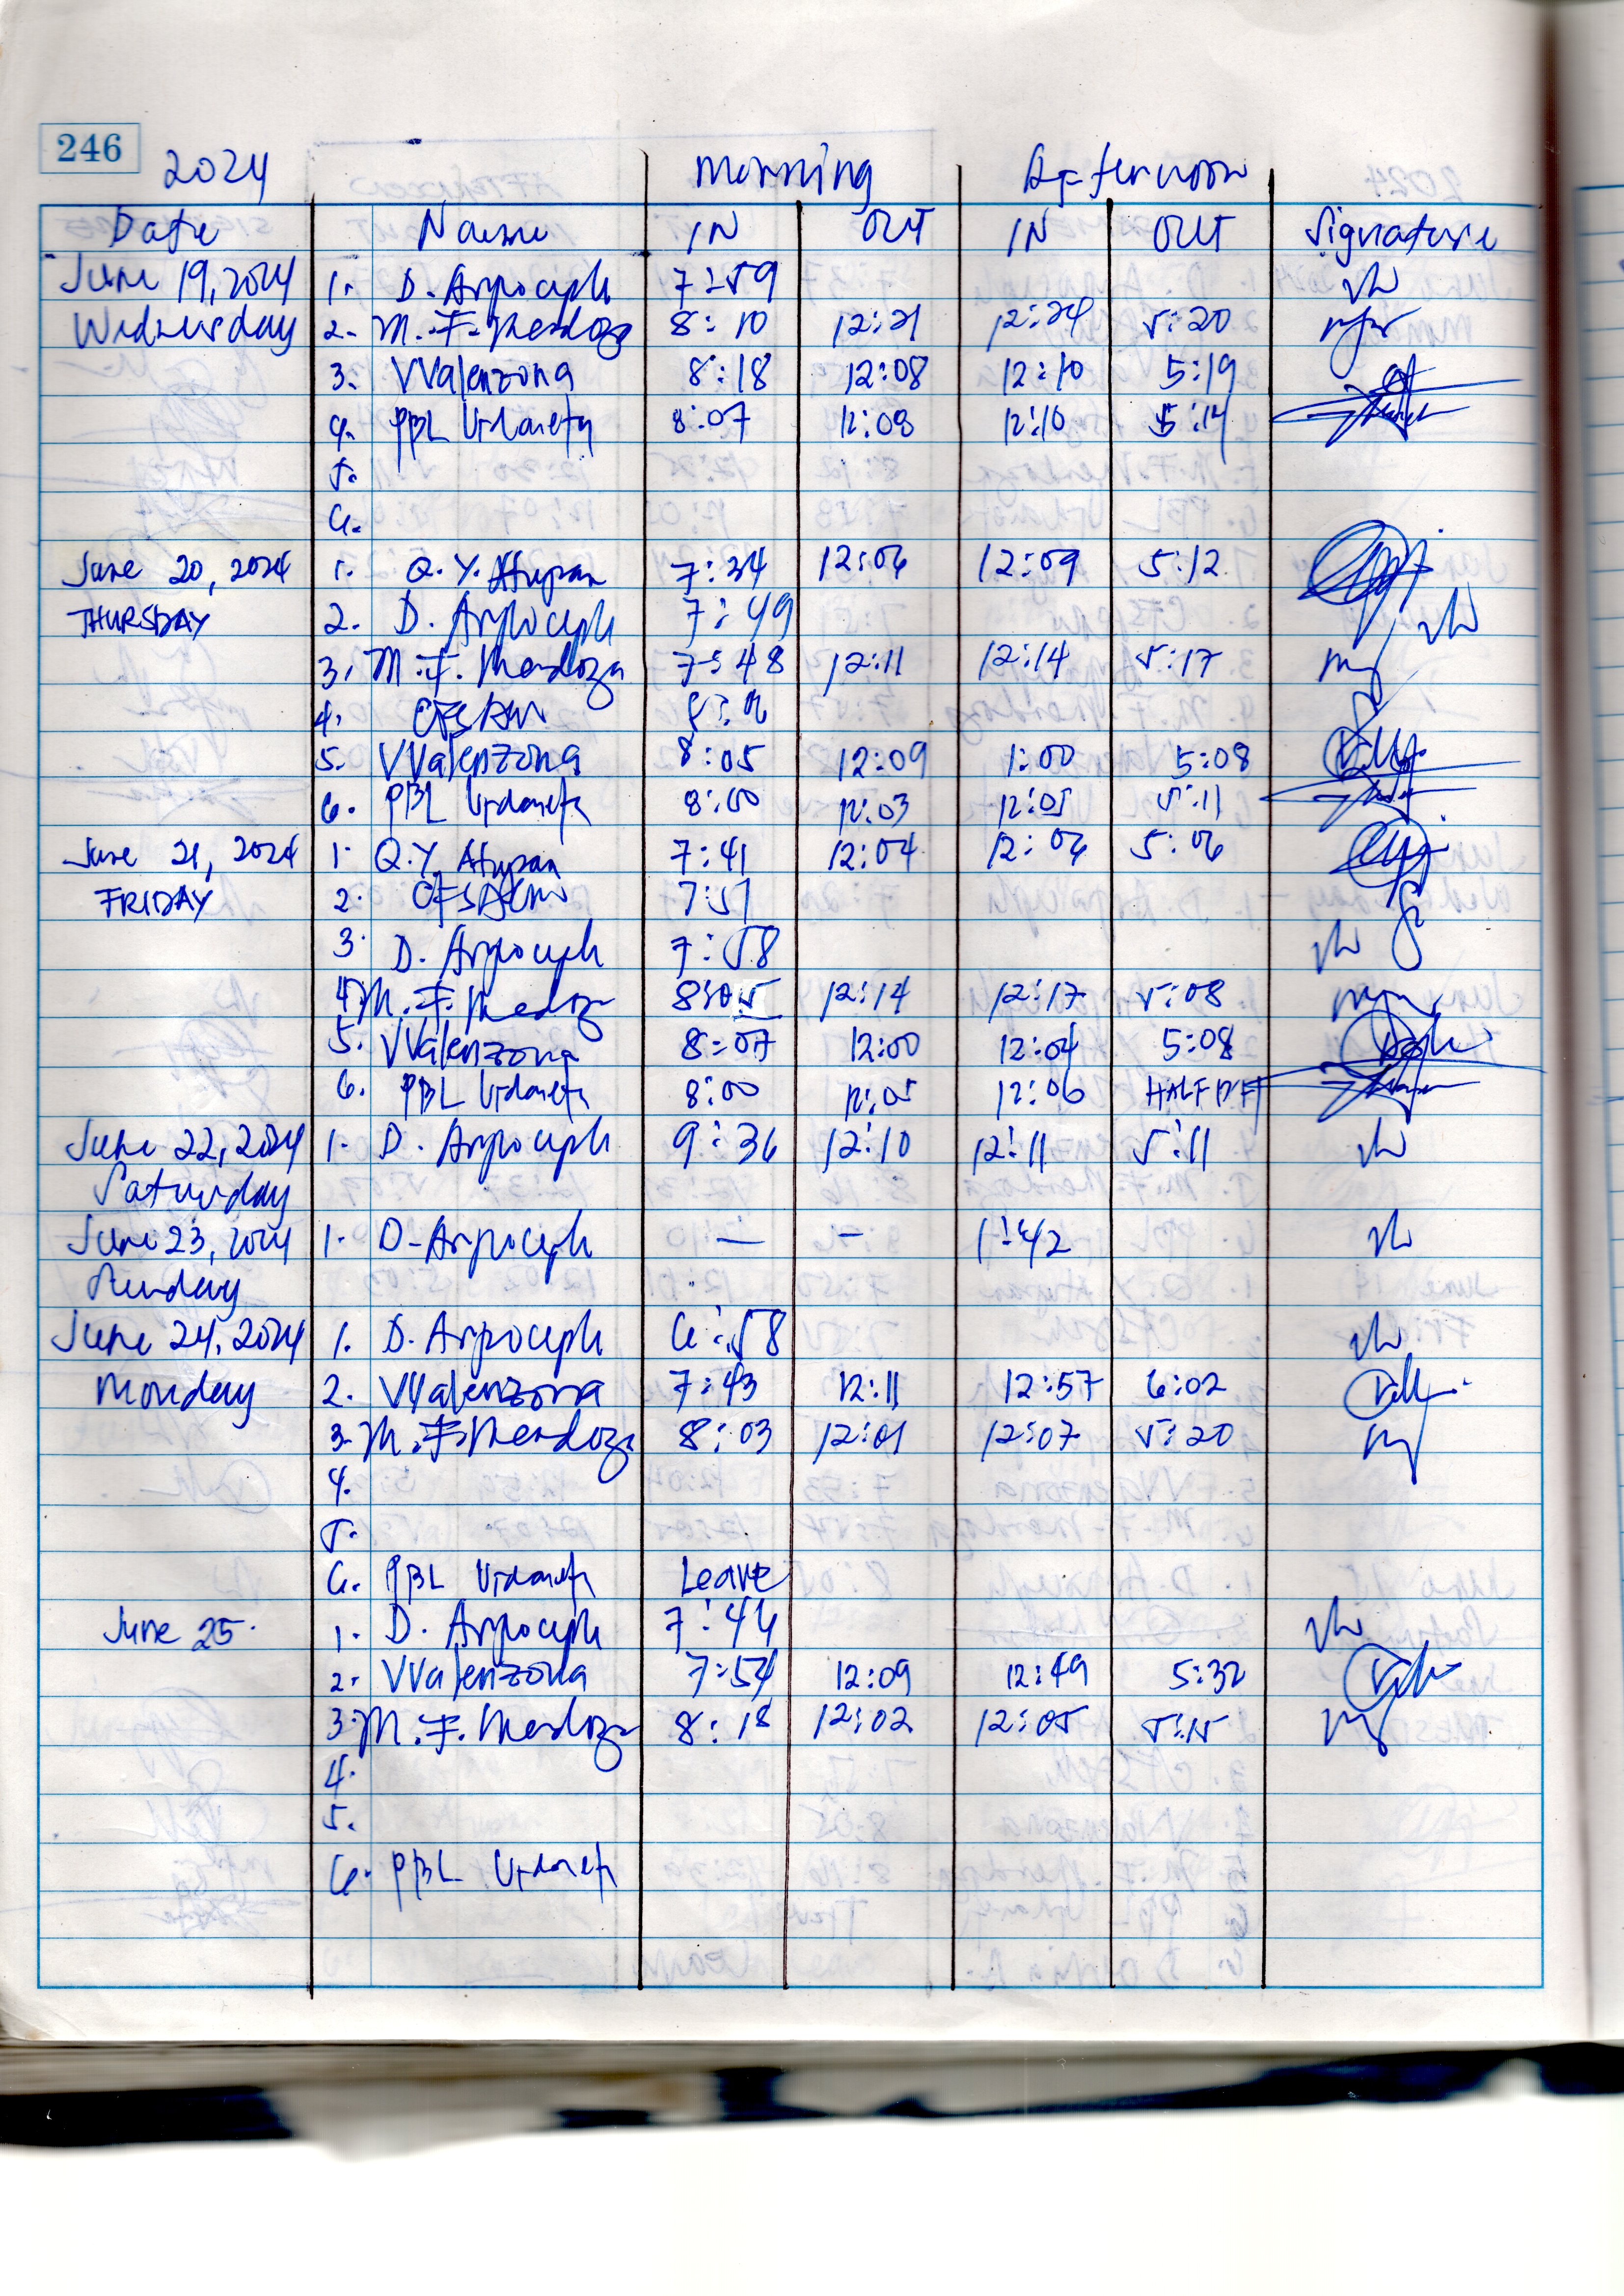 246
2024 Morning Afternoon
Date Name IN OUT IN OUT Signature
June 19, 2024 1. D. Arpoceph 7:59
Wednesday 2. M. F. Mendoza 8:10 12:21 12:24 5:20
3. VValenzona 8:18 12:08 12:10 5:19
4. PBL Urdaneta 8:07 12:08 12:10 5:14
5.
6.
June 20, 2024 1. Q. Y. Atupan 7:34 12:06 12:09 5:12
THURSDAY 2. D. Arpoceph 7:49
3. M. F. Mendoza 7:48 12:11 12:14 5:17
4.
5. VValenzona 8:05 12:09 1:00 5:08
6. PBL Urdaneta 8:00 12:03 12:05 5:11
June 21, 2024 1. Q. Y. Atupan 7:41 12:04 12:06 5:06
FRIDAY 2. 7:51
3. D. Arpoceph 7:58
4. M. F. Mendoza 8:05 12:14 12:17 5:08
5. VValenzona 8:07 12:00 12:04 5:08
6. PBL Urdaneta 8:00 12:05 12:06 HALF DAY
June 22, 2024 1. D. Arpoceph 9:36 12:10 12:11 5:11
Saturday
June 23, 2024 1. D. Arpoceph — — 1:42
Sunday
June 24, 2024 1. D. Arpoceph 6:58
Monday 2. VValenzona 7:43 12:11 12:57 6:02
3. M. F. Mendoza 8:03 12:01 12:07 5:20
4.
5.
6. PBL Urdaneta Leave
June 25. 1. D. Arpoceph 7:46
2. VValenzona 7:54 12:09 12:49 5:32
3. M. F. Mendoza 8:18 12:02 12:05 5:15
4.
5.
6. PBL Urdaneta